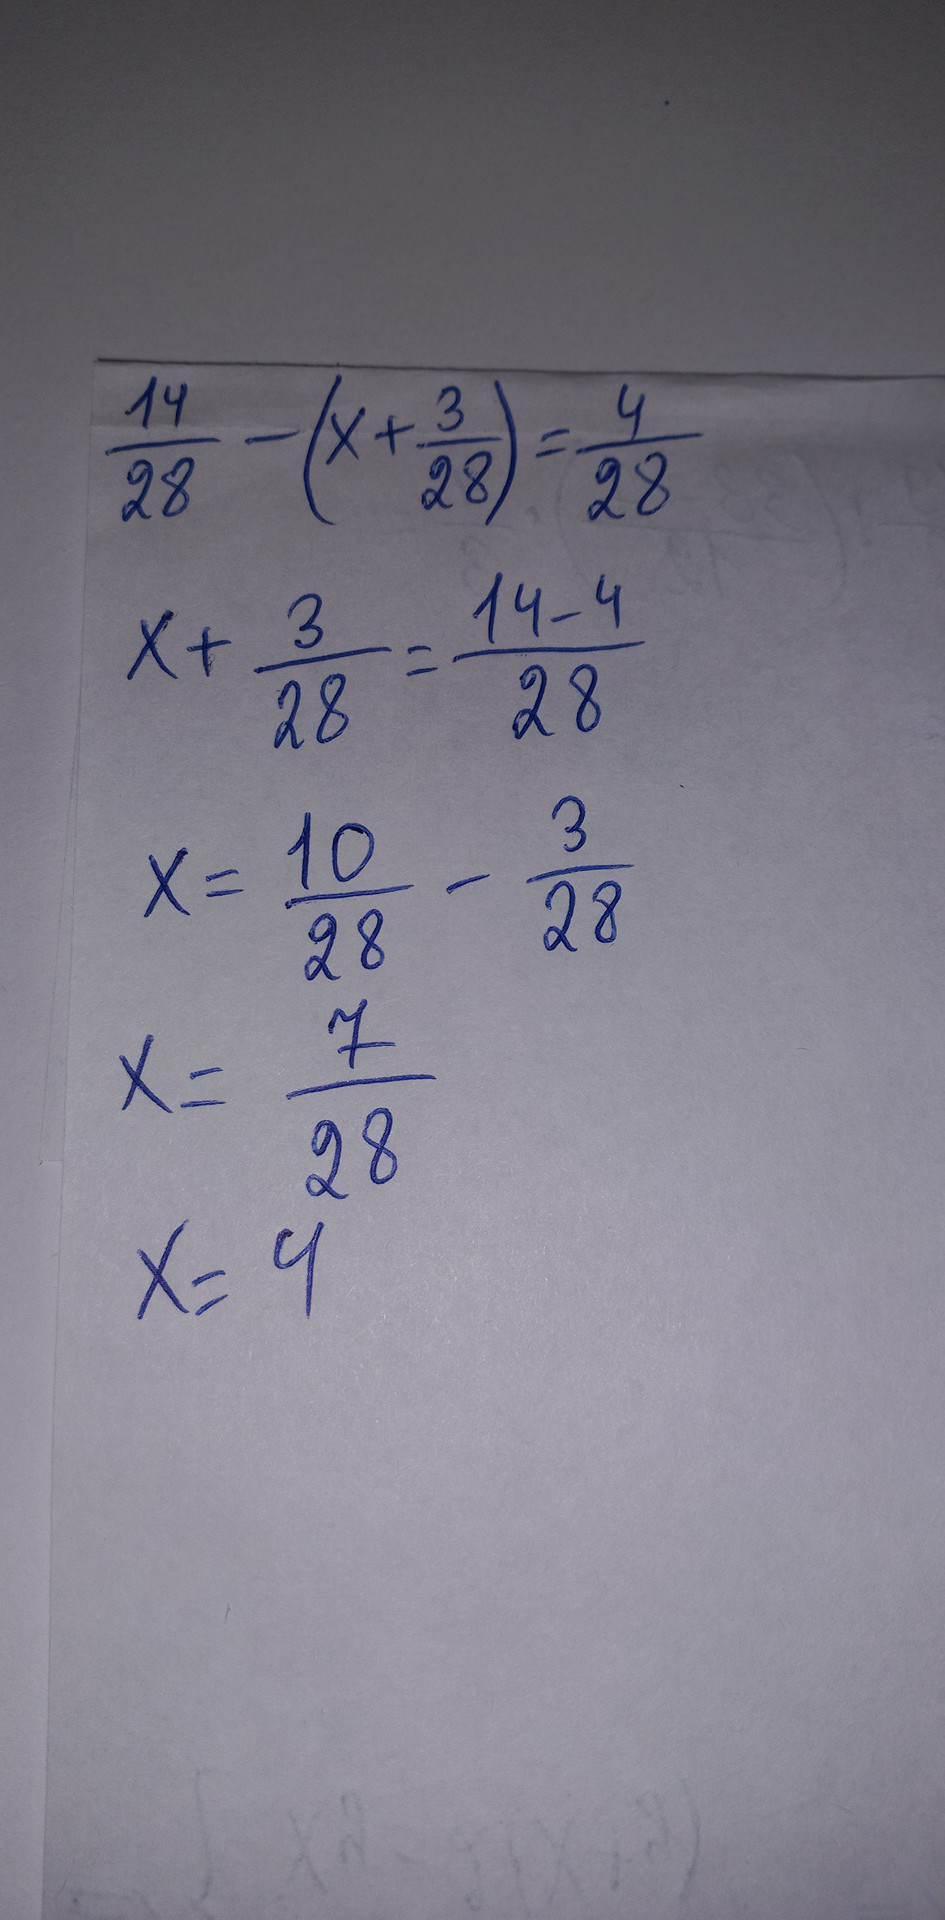 14/28 - (x + 3/28) = 4/28
x + 3/28 = 14-4/28
x = 10/28 - 3/28
x = 7/28
x = 4